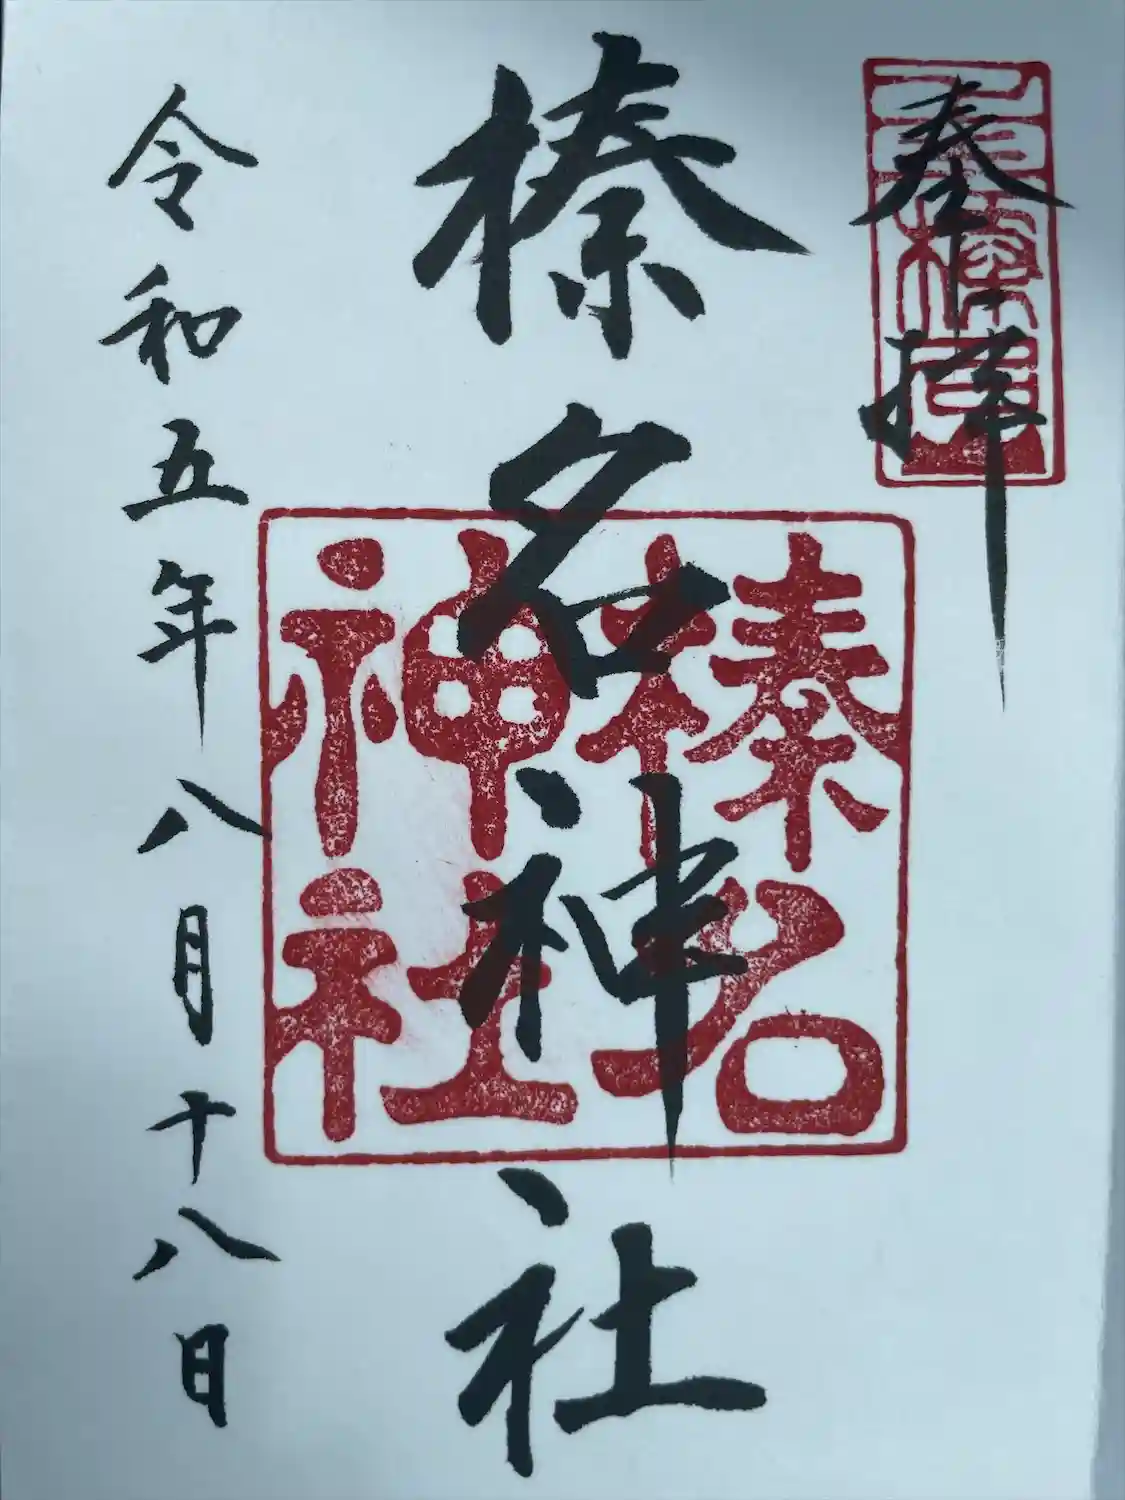 奉拝
榛名神社
榛名
神社
令和五年八月十八日